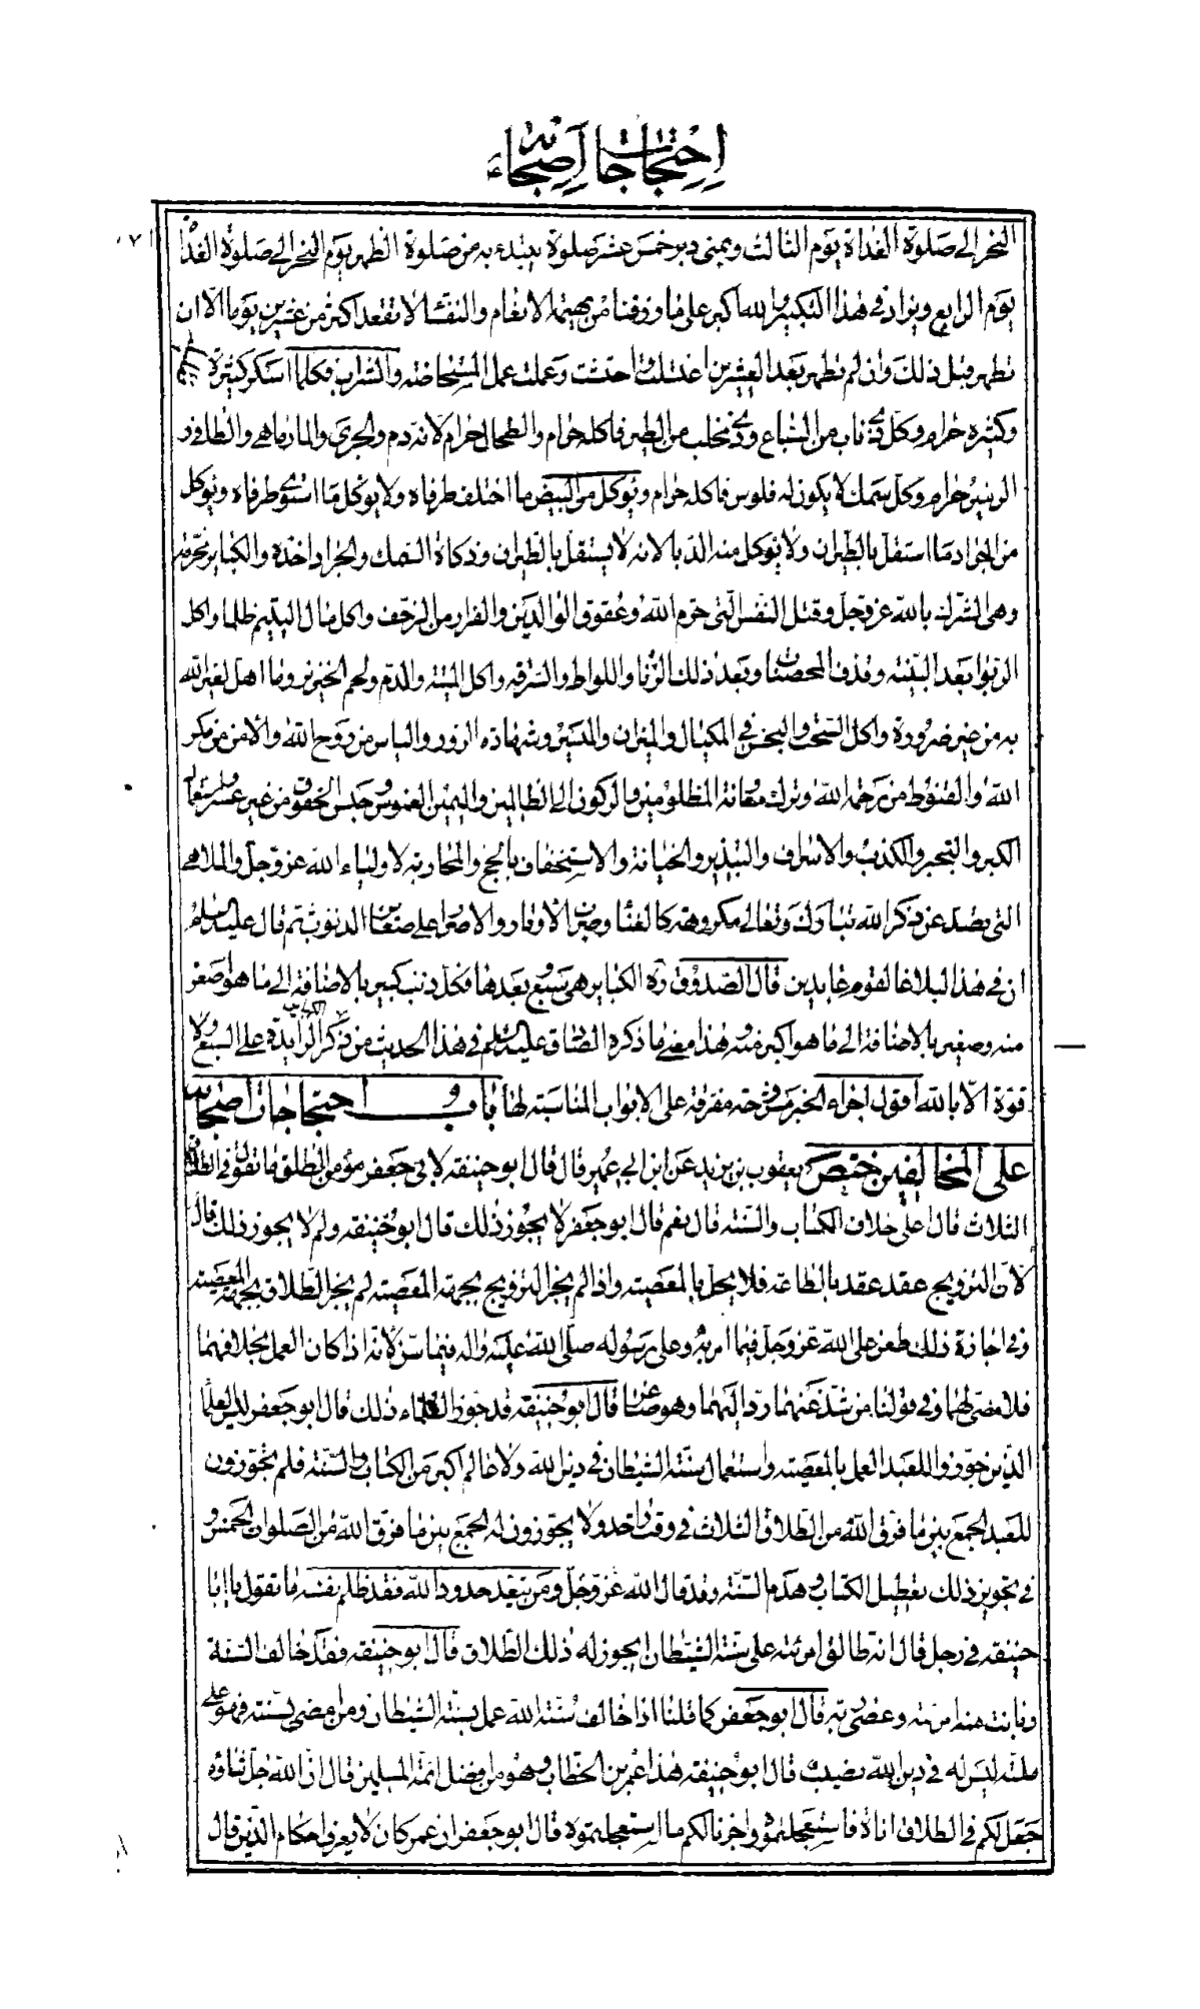 احتجاجات اصحابه ع
النحر الى صلوة الغداة يوم الثالث وبمنى دبر خمس عشر صلوة يبتدء به من صلوة الظهر يوم النحر الى صلوة الغداة
يوم الرابع ويزاد فى هذا التكبير والله اكبر على ما رزقنا من بهيمة الانعام والنفساء لا تقعد اكثر من عشرين يوما الا ان
تطهر قبل ذلك وان لم تطهر بعد العشرين اغتسلت واحتشت وعملت عمل المستحاضة والشراب فكلما اسكر كثيره فقليله
وكثيره حرام وكل ذى ناب من السباع وذى مخلب من الطير فاكله حرام والطحال حرام لانه دم والجرى والمارماهى والطافى و
الزمير حرام وكل سمك لا يكون له فلوس فاكله حرام ويؤكل من البيض ما اختلف طرفاه ولا يؤكل ما استوى طرفاه ويؤكل
من الجراد ما استقل بالطيران ولا يؤكل منه الدبا لانه لا يستقل بالطيران وذكاة السمك والجراد اخذه والكباير محرمة
وهى الشرك بالله عز وجل وقتل النفس التى حرم الله وعقوق الوالدين والفرار من الزحف واكل مال اليتيم ظلما واكل
الربوا بعد البينة وقذف المحصنات وبعد ذلك الزنا واللواط والسرقة واكل الميتة والدم ولحم الخنزير وما اهل لغير الله
به من غير ضرورة واكل السحت والبخس فى المكيال والميزان والميسر وشهادة الزور والياس من روح الله والامن من مكر
الله والقنوط من رحمة الله وترك معاونة المظلومين والركون الى الظالمين واليمين الغموس وحبس الحقوق من غير عسر واستعمال
الكبر والتجبر والكذب والاسراف والتبذير والخيانة والاستخفاف بالحج والمحاربة لاولياء الله عز وجل والملاهى
التى تصد عن ذكر الله تبارك وتعالى مكروهة كالغناء وضرب الاوتار والاصرار على صغاير الذنوب ثم قال عليه السلم
ان فى هذا لبلاغا لقوم عابدين قال الصدوق ره الكباير هى سبع وبعدها فكل ذنب كبير بالاضافة الى ما هو اصغر
منه وصغير بالاضافة الى ما هو اكبر منه وهذا معنى ما ذكره الصادق عليه السلم فى هذا الحديث من ذكر الكباير الزايدة على السبع ولا
قوة الا بالله اقول اجزاء الخبر مشروحة مفرقة على الابواب المناسبة لها باب و احتجاجات اصحابه
على المخالفين ختص يعقوب بن يزيد عن ابن ابى عمير قال قال ابو حنيفة لابى جعفر مؤمن الطاق ما تقول فى الطلاق
الثلاث قال اعلى خلاف الكتاب والسنة قال نعم قال ابو جعفر لا يجوز ذلك قال ابو حنيفة ولم لا يجوز ذلك قال
لان التزويج عقد عقد بالطاعة فلا يحل بالمعصية واذا لم يجز التزويج بجهة المعصية لم يجز الطلاق بجهة المعصية
وفى اجازة ذلك طعن على الله عز وجل فيما امر به وعلى رسوله صلى الله عليه واله فيما سن لانه اذا كان العمل بخلافهما
فلا معنى لهما وفى قولنا من شذ عنهما رد اليهما وهو صاغر قال ابو حنيفة قد جوز العلماء ذلك قال ابو جعفر ليس العلماء
الذين جوزوا للعبد العمل بالمعصية واستعمال سنة الشيطان فى دين الله ولا عالم اكبر من الكتاب والسنة فلم تجوزون
للعبد الجمع بين ما فرق الله من الطلاق الثلاث فى وقت واحد ولا تجوزون له الجمع بين ما فرق الله من الصلوات الخمس و
فى تجويز ذلك تعطيل الكتاب وهدم السنة وقد قال الله عز وجل ومن يتعد حدود الله فقد ظلم نفسه ما تقول يا ابا
حنيفة فى رجل قال انه طالق امرئته على سنة الشيطان ايجوز له ذلك الطلاق قال ابو حنيفة فقد خالف السنة
وبانت منه امرءته وعصى ربه قال ابو جعفر كما قلنا اذا خالف سنة الله عمل بسنة الشيطان ومن امضى بسنته فهو على
ملته ليس له فى دين الله نصيب قال ابو حنيفة هذا عمر بن الخطاب وهو من افضل ائمة المسلمين قال ان الله جل ثناؤه
جعل لكم فى الطلاق اناة فاستعجلتموه واجزنا لكم ما استعجلتموه قال ابو جعفر ان عمر كان لا يعرف احكام الدين قال